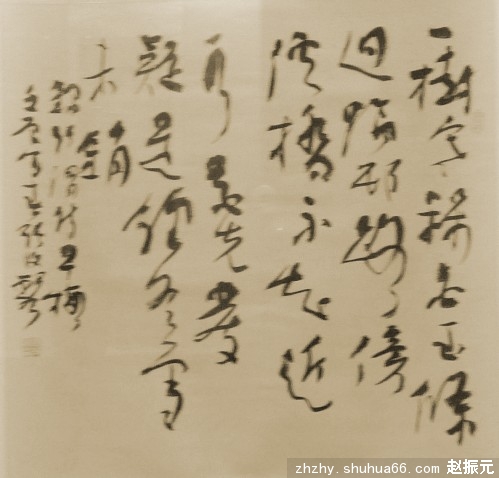 一樹寒梅白玉條
迥臨邨路傍
溪橋不知近
水花先發
疑是經冬雪
未銷
張謂詩早梅
zhzhy.shuhua66.com 赵振元